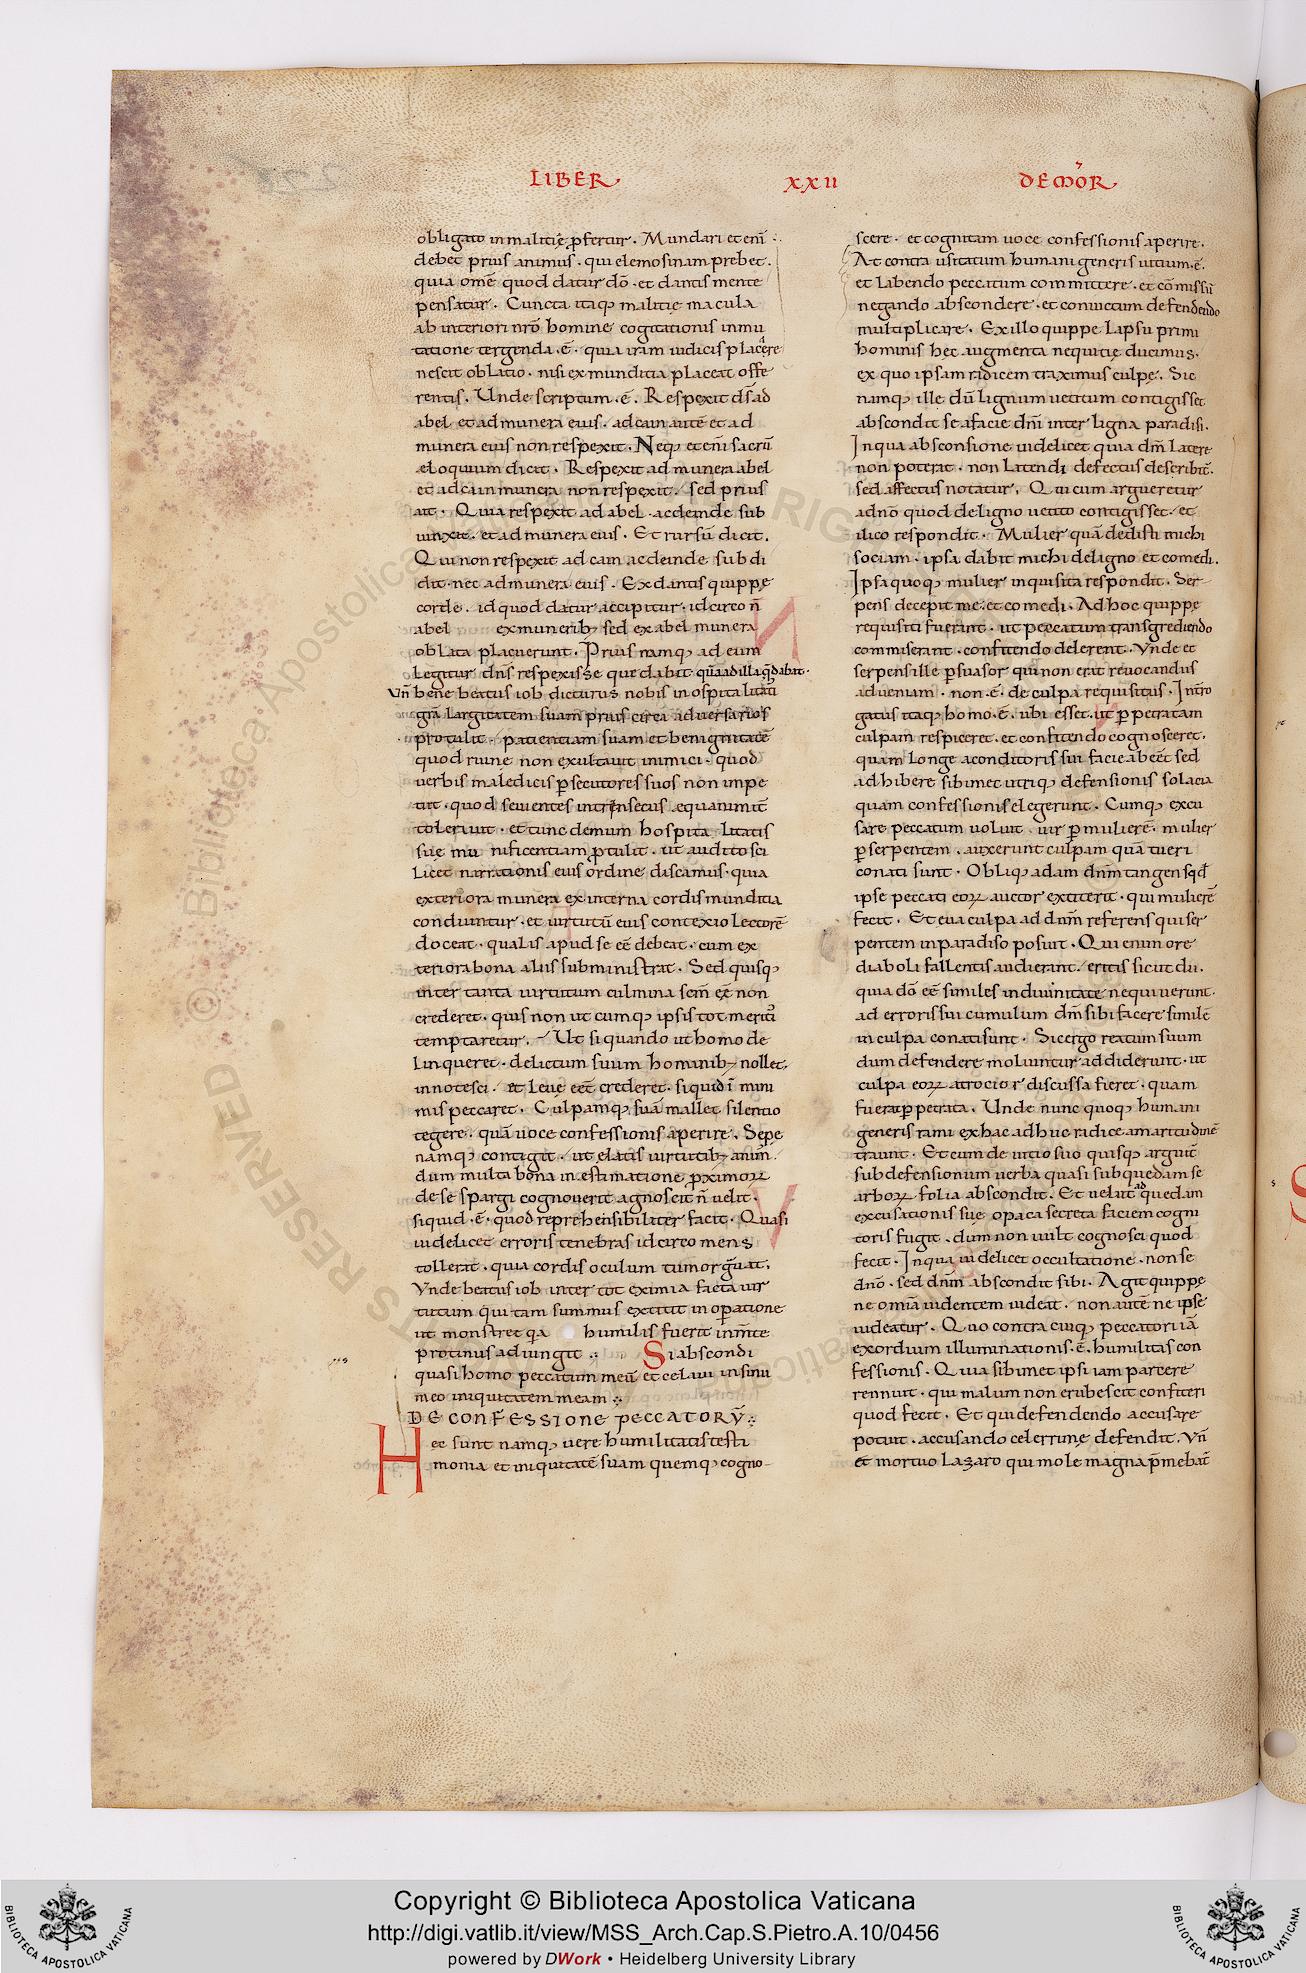 LIBER XXII DE MOR̃
obligato in malitię ꝓfertur. Mundari etenī
debet prius animus. qui elemosinam prebet.
quia omē quod datur dō. et dantis mente
pensatur. Cuncta itaq; malitie macula
ab interiori nrō homine cogitationis inmu
tatione tergenda.ē. quia iram iudicis placare
nescit oblatio. nisi ex munditia placeat offe
rentis. Unde scriptum.ē. Respexit dś ad
abel et ad munera eius. ad cain autē et ad
munera eius non respexit. Neq; etenī sacrū
ęloquium dicit. Respexit ad munera abel
et ad cain munera non respexit. sed prius
ait. Quia respexit ad abel. ac deinde sub
iunxit. et ad munera eius. Et rursū dicit.
Qui non respexit ad cain ac deinde subdi
dit. nec ad munera eius. Ex dantis quippe
corde. id quod datur accipitur. idcirco ñ
abel ex munerib; sed ex abel munera
oblata placuerunt. Prius namq; ad eum
legitur dn̄s respexisse qui dabat quā ad illa q̨ dabat.
Uñ bene beatus iob dicturus nobis in ospitalitati
grã largitatem suam prius circa aduersarios
protulit. patientiam suam et benignitatē
quod ruine non exultauit inimici. quod
uerbis maledicis ꝑsecutores suos non impe
tiit. quod seuientes intrinsecus equanimit̄
tolerauit. et tunc demum hospitalitatis
suę munificentiam ꝓtulit. ut audito sci
licet narrationis eius ordine discamus. quia
exteriora munera ex interna cordis munditia
condiuntur. et uirtutū eius contexio lectorē
doceat. qualis apud se eē debeat. cum ex
teriora bona aliis subministrat. Sed quisq;
inter tanta uirtutum culmina scm̄ eē non
crederet. quis non utcumq; ipsis tot meritis
temptaretur. Ut si quando ut homo de
linqueret. delictum suum hominib; nollet
innotesci. et leue eēt crederet. si quid ī mini
mis peccaret. Culpamq; suā mallet silentio
tegere. quā uoce confessionis aperire. Sepe
namq; contigit. ut elatis uirtutib; animꝰ.
dum multa bona in estimatione ꝓximoꝝ
de se spargi cognouerit agnoscit ñ uelit.
siquid.ē. quod reprehensibiliter facit. Quasi
uidelicet erroris tenebras idcirco mens
tollerat. quia cordis oculum tumor grauat.
Unde beatus iob inter tot eximia facta uir
tutum qui tam summus extitit in operatione
ut monstret qia humilis fuerit in mte
protinus adiungit. Si abscondi
quasi homo peccatum meū et celaui in sinu
meo iniquitatem meam
DE CONFESSIONE PECCATORŪ
Hec sunt namq; uere humilitatis testi
monia et iniquitatē suam quemq; cogno-
scere. et cognitam uoce confessionis aperire.
At contra usitatum humani generis uitium.ē.
et labendo peccatum committere. et cōmissū
negando abscondere. et conuictum defendendo
multiplicare. Ex illo quippe lapsu primi
hominis hęc augmenta nequitię ducimus.
ex quo ipsam radicem traximus culpę. Sic
namq; ille dū lignum uetitum contigisset
abscondit se a facie dn̄i inter ligna paradisi.
In qua absconsione uidelicet quia dn̄m latere
non poterat. non latendi defectus describit̄.
sed affectus notatur. Qui cum argueretur
a dnō quod de ligno uetito contigisset. et
ilico respondit. Mulier quā dedisti michi
sociam. ipsa dabit michi de ligno et comedi.
Ipsa quoq; mulier inquisita respondit. Ser
pens decepit me. et comedi. Ad hoc quippe
requisiti fuerant. ut peccatum transgrediendo
commiserant. confitendo delerent. Unde et
serpens ille ꝑsuasor qui non erat reuocandus
ad ueniam. non.ē. de culpa requisitus. Intro
gatus itaq; homo.ē. ubi esset. ut ꝑpetratam
culpam respiceret. et confitendo cognosceret.
quam longe a conditoris sui facie abeēt sed
adhibere sibimet utriq; defensionis solacia
quam confessionis elegerunt. Cumq; excu
sare peccatum uoluit. uir ꝑ mulierē. mulier
ꝑ serpentem. auxerunt culpam quā tueri
conati sunt. Obliq; adam dn̄m tangens qd̄
ipse peccati eoꝝ auctor extiterit. qui mulierē
fecit. Et eua culpa ad dn̄m referens qui ser
pentem in paradiso posuit. Qui enim ore
diaboli fallentis audierant. eritis sicut dii.
quia dō eē similes in diuinitate nequiuerunt.
ad erroris sui cumulum dn̄m sibi facere similē
in culpa conati sunt. Sic ergo reatum suum
dum defendere moliuntur addiderunt. ut
culpa eoꝝ atrocior discussa fieret. quam
fuerat ꝑpetrata. Unde nunc quoq; humani
generis rami ex hac adhuc radice amaritudinē
traunt. Et cum de uitio suo quisq; arguit̄
sub defensionum uerba quasi sub quedam se
arboꝝ folia abscondit. Et uelut ad quedam
excusationis suę opaca secreta faciem cogni
toris fugit. dum non uult cognosci quod
fecit. In qua uidelicet occultatione. non se
dnō. sed dn̄m abscondit sibi. Agit quippe
ne omia uidentem uideat. non autē ne ipse
uideatur. Quo contra cuiq; peccatori iā
exordium illuminationis.ē. humilitas con
fessionis. Quia sibimet ipsi iam parcere
rennuit. qui malum non erubescit confiteri
quod fecit. Et qui defendendo accusare
potuit. accusando celerrune defendit. Uñ
et mortuo lazaro qui mole magna p̄mebat̄
Copyright © Biblioteca Apostolica Vaticana
http://digi.vatlib.it/view/MSS_Arch.Cap.S.Pietro.A.10/0456
powered by DWork • Heidelberg University Library